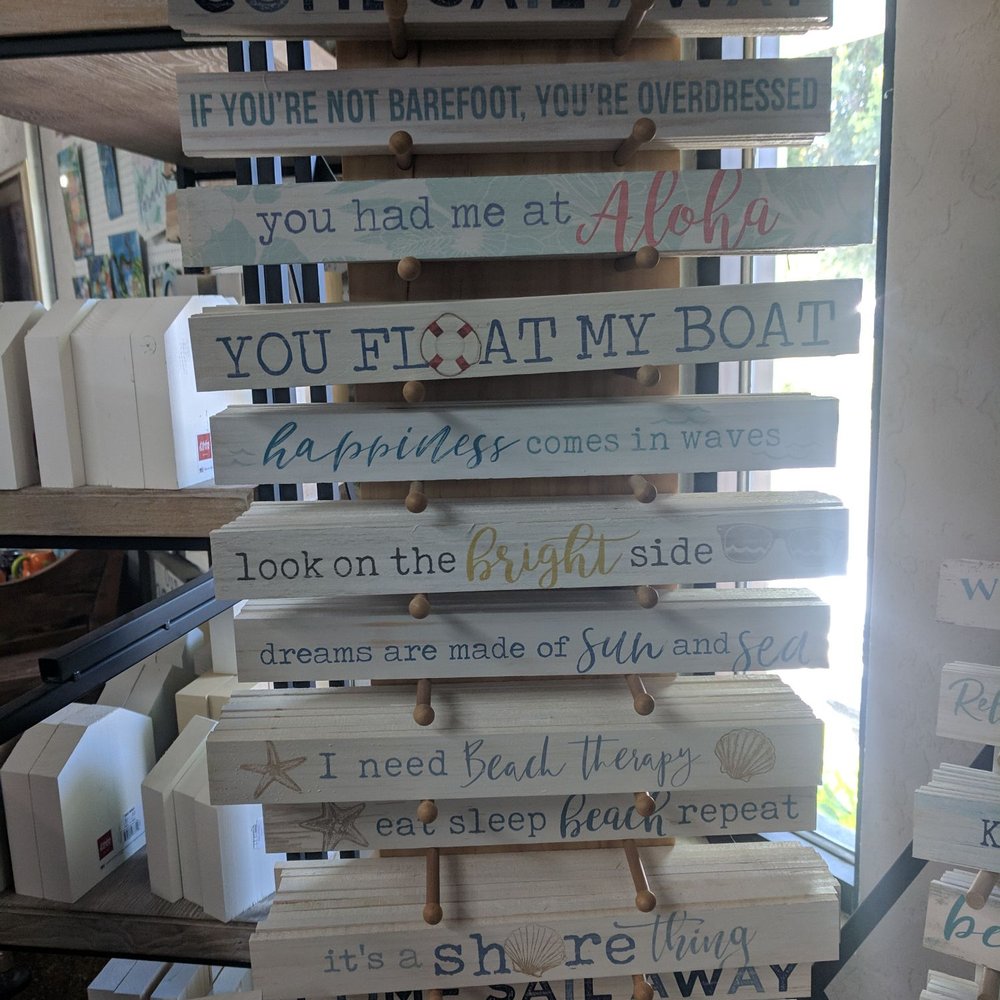 COME SAIL AWAY
IF YOU'RE NOT BAREFOOT, YOU'RE OVERDRESSED
you had me at Aloha
YOU FLOAT MY BOAT
happiness comes in waves
look on the bright side
dreams are made of sun and sea
I need Beach therapy
eat sleep beach repeat
it's a shore thing
COME SAIL AWAY
W
Re
K
be